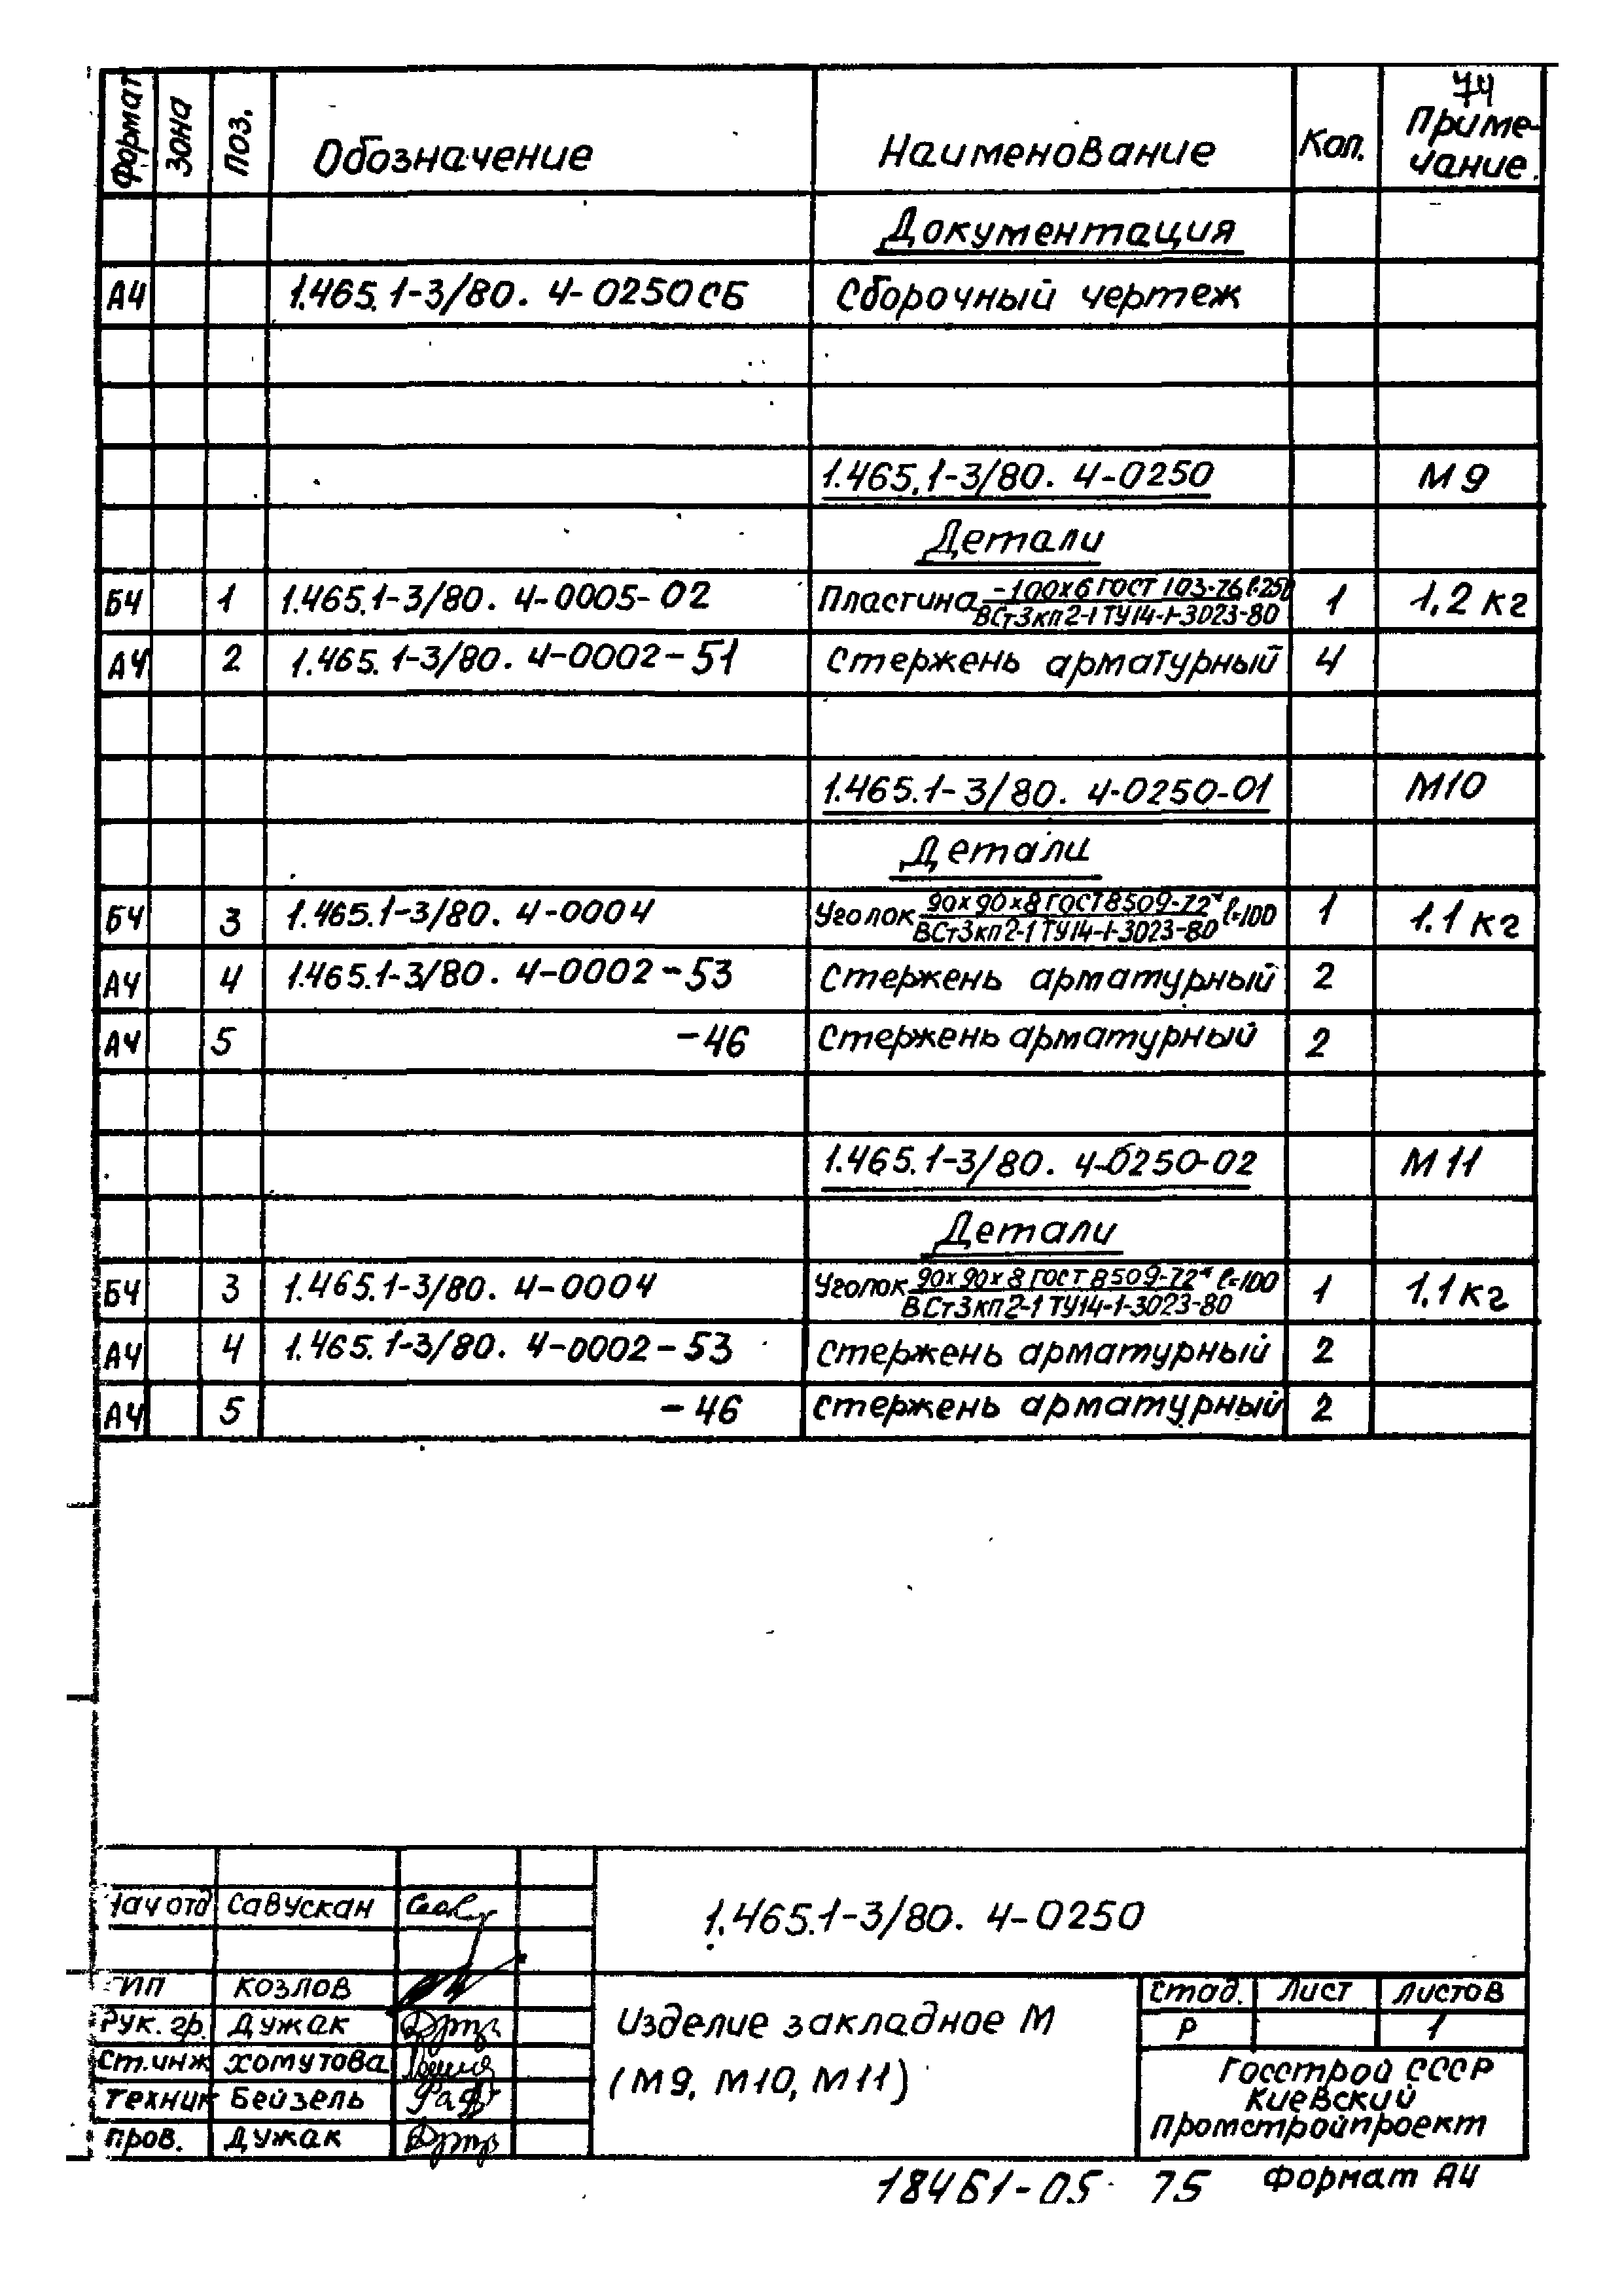 74
Формат Зона Поз. Обозначение Наименование Кол. Приме-
чание.
Документация
А4 1.465.1-3/80. 4-0250СБ Сборочный чертеж
1.465.1-3/80. 4-0250 М9
Детали
Б4 1 1.465.1-3/80. 4-0005-02 Пластина -100х6 ГОСТ 103-76 ℓ=250 1 1,2 кг
ВСт3кп2-1 ТУ14-1-3023-80
А4 2 1.465.1-3/80. 4-0002-51 Стержень арматурный 4
1.465.1-3/80. 4-0250-01 М10
Детали
Б4 3 1.465.1-3/80. 4-0004 Уголок 90х90х8 ГОСТ 8509-72* ℓ=100 1 1,1 кг
ВСт3кп2-1 ТУ14-1-3023-80
А4 4 1.465.1-3/80. 4-0002-53 Стержень арматурный 2
А4 5 -46 Стержень арматурный 2
1.465.1-3/80. 4-0250-02 М11
Детали
Б4 3 1.465.1-3/80. 4-0004 Уголок 90х90х8 ГОСТ 8509-72* ℓ=100 1 1,1 кг
ВСт3кп2-1 ТУ14-1-3023-80
А4 4 1.465.1-3/80. 4-0002-53 Стержень арматурный 2
А4 5 -46 Стержень арматурный 2
Нач отд Савускан
1.465.1-3/80. 4-0250
ГИП Козлов
Рук. гр. Дужак
Ст.инж Хомутова
Техник Бейзель
Пров. Дужак
Изделие закладное М
(М9, М10, М11)
Стад. Лист Листов
Р 1
Госстрой СССР
Киевский
Промстройпроект
18461-05 75 Формат А4